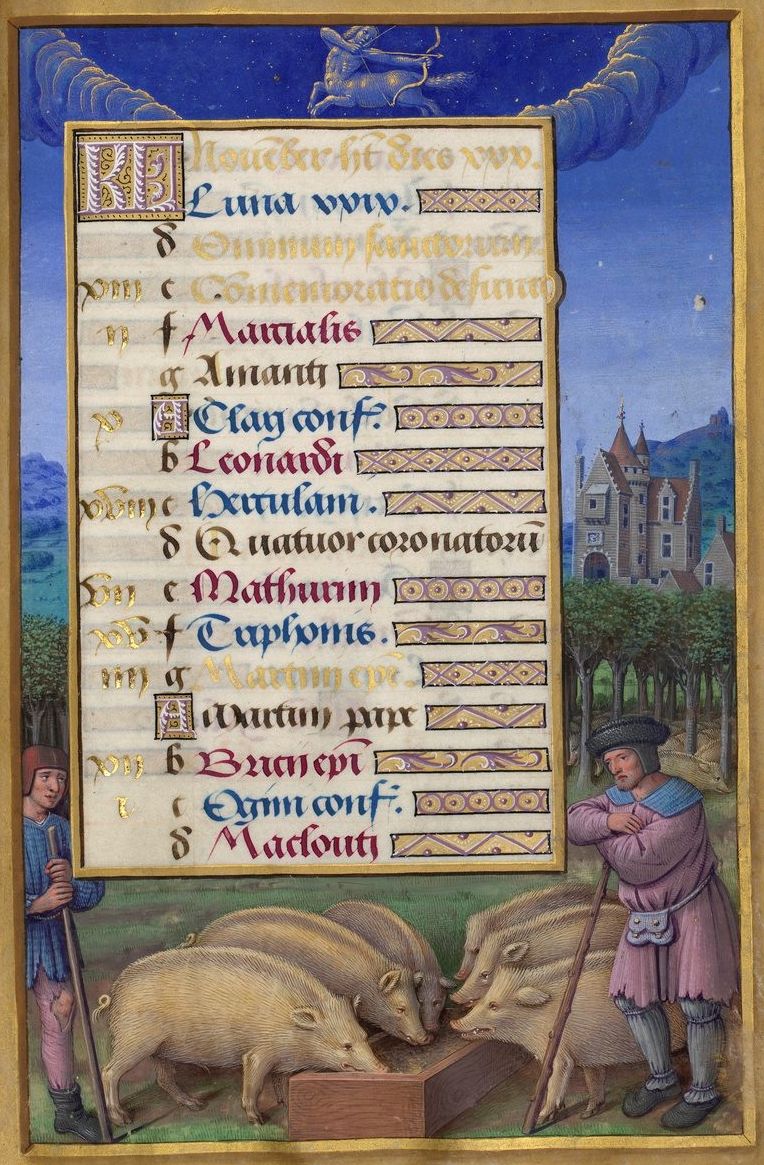 KL Nouēber ht dies xxx.
Luna xxix.
d Omnium sanctorum
xiii e Comemoratio defuncto
ii f Marcialis
g Amantij
x A Clari conf.
b Leonardi
xviii c Herculani.
d Quatuor coronatorū
vii e Mathurini
xv f Triphonis.
iiii g Martini epī.
A Martini pape
xii b Bricij epī
i c Ogini conf.
d Macloutj